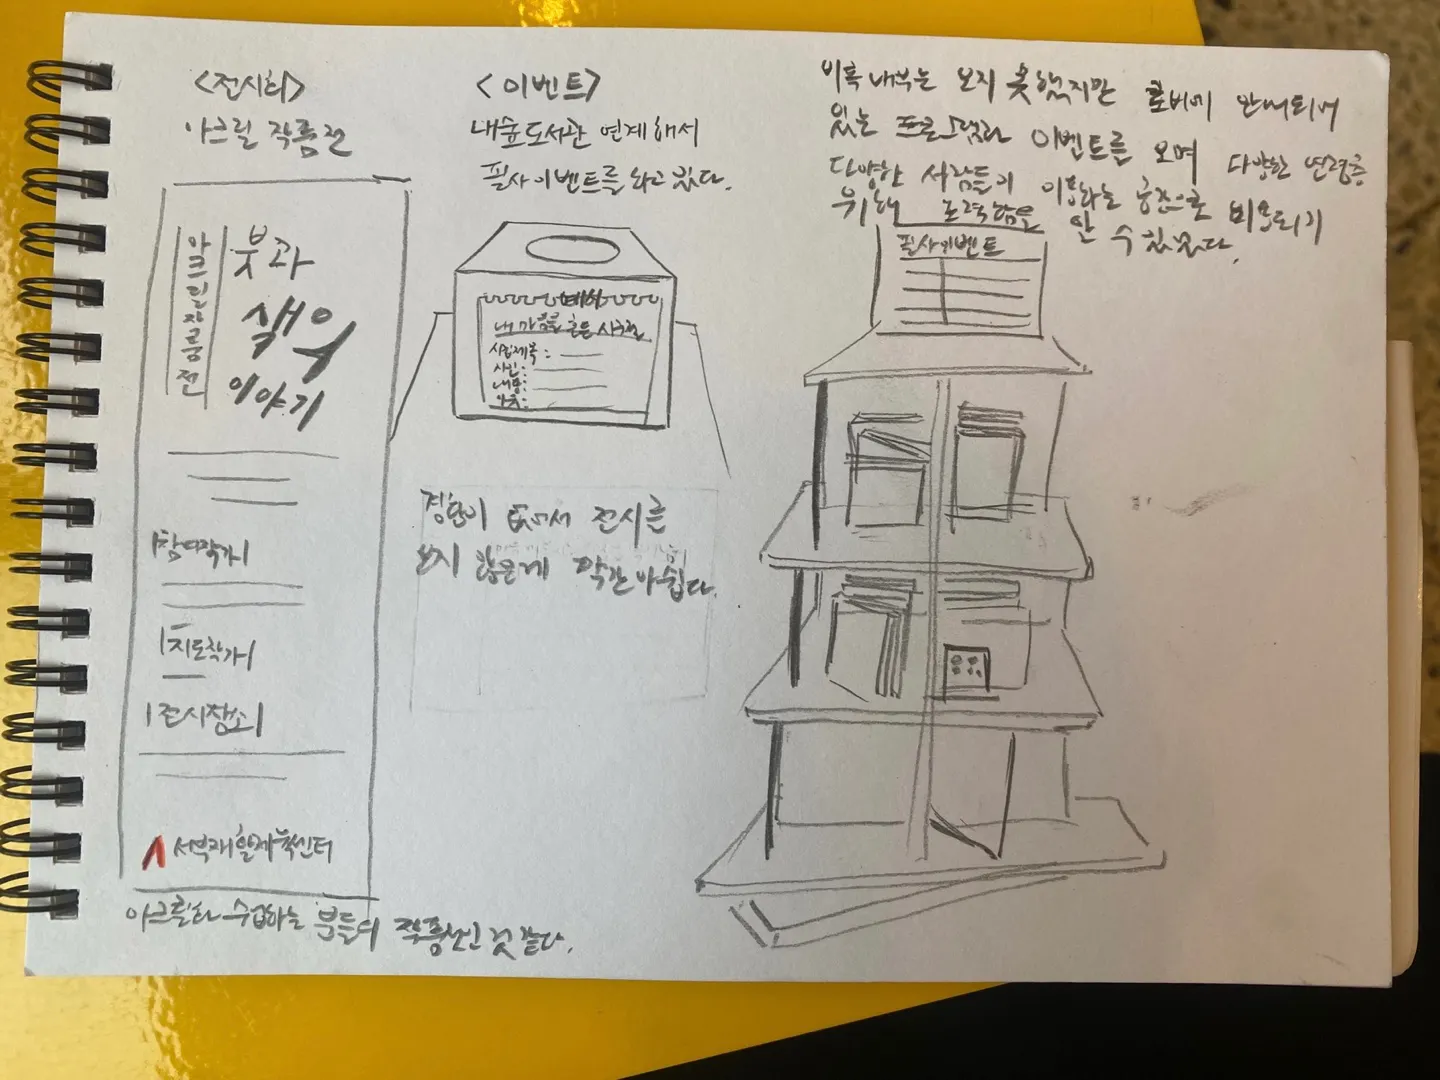 <전시회>
아크릴 작품전
아크릴작품전
붓과
색의
이야기
|참여작가|
|지도작가|
|전시장소|
서부재활체육센터
아크릴화 수업하는 분들의 작품전인 것 같다.
<이벤트>
내숲도서관 연계해서
필사이벤트를 하고 있다.
내 마음을 흔든 시구절
시집제목:
시인:
내용:
정보가 없어서 전시를
보지 않은게 약간 아쉽다.
비록 내부는 보지 못했지만 로비에 안내되어
있는 프로그램과 이벤트를 보며 다양한 연령층
다양한 사람들이 이용하는 공간으로 비용되기
위해 노력함을 알 수 있었다.
필사이벤트